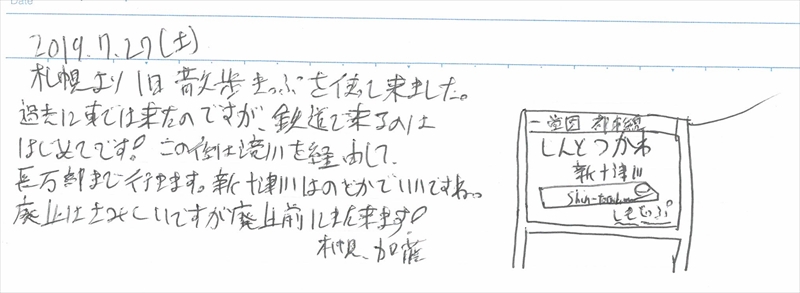 Date
2019.7.27(土)
札幌より1日散歩きっぷを使って来ました。
過去に車では来たのですが、鉄道で来るのは
はじめてです! この後は滝川を経由して、
長万部まで行きます。新十津川はのどかでいいですね。
廃止はさみしいですが廃止前にまた来ます!
札幌、加藤
一学園都市線
しんとつかわ
新十津川
Shin-
しもとっぷ